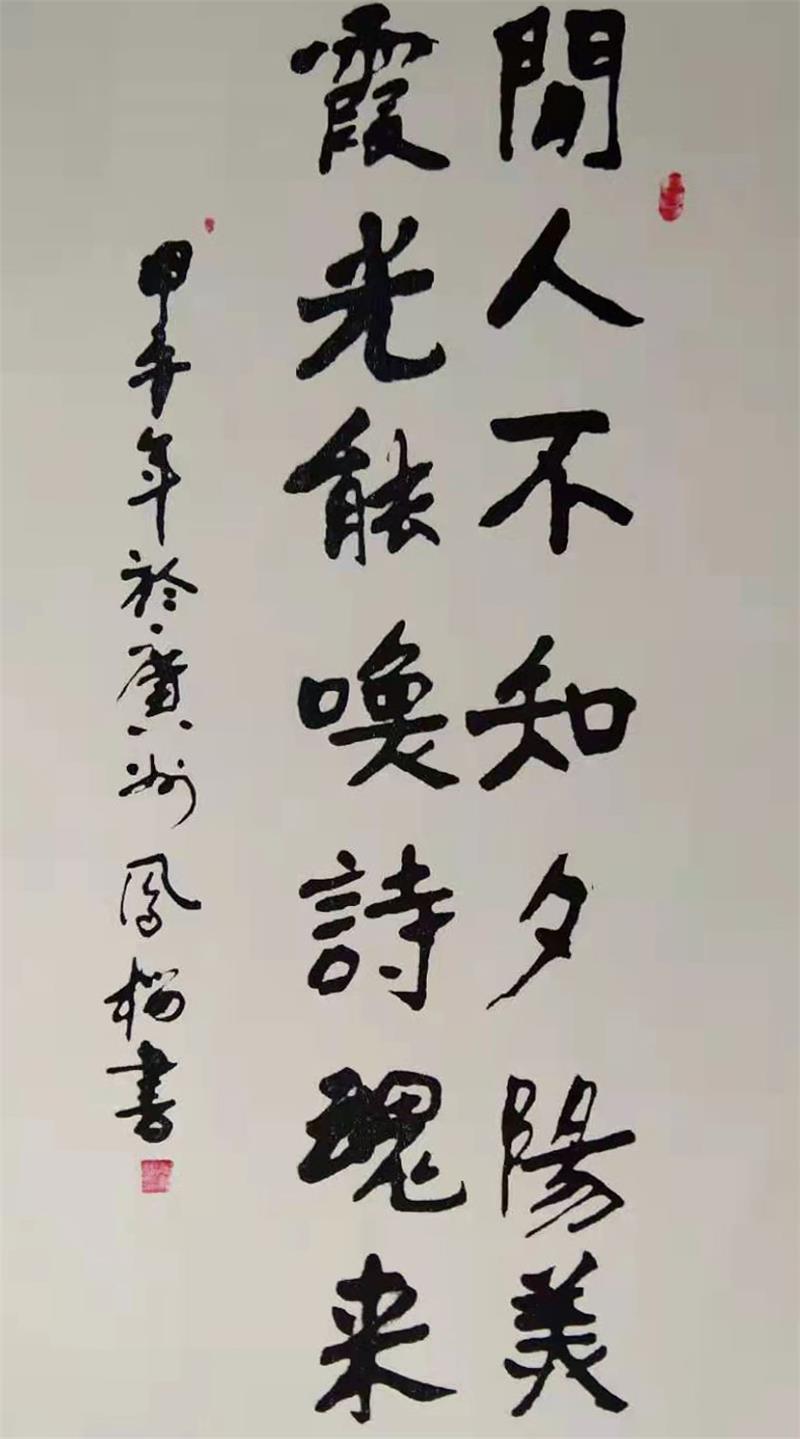 閒人不知夕陽美
霞光能喚詩魂来
甲午年於廣州鳳梅書